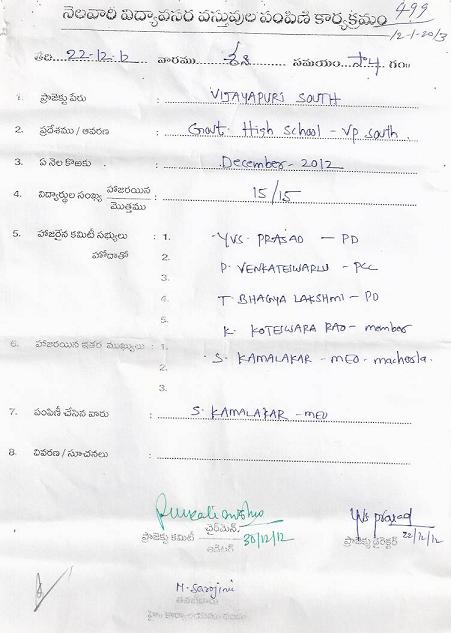 నెలవారి విద్యావసర వస్తువుల పంపిణి కార్యక్రమం 499
12-1-2013
తేది 22-12-12 వారము శని సమయం సా 4 గం॥
1. ప్రాజెక్టు పేరు : VIJAYAPURI SOUTH
2. ప్రదేశము / ఆవరణ : Govt. High School - Vp South.
3. ఏ నెల కొఱకు : December-2012
4. విద్యార్థుల సంఖ్య హాజరయిన / మొత్తము : 15/15
5. హాజరైన కమిటీ సభ్యులు : 1. YVS. PRASAD - PD
హోదాతో 2. P. VENKATESWARLU - PCC
3.
4. T BHAGYA LAKSHMI - PD
5. K. KOTESWARA RAO - member
6. హాజరయిన ఇతర ముఖ్యులు : 1. S. KAMALAKAR - MEO - macherla.
2.
3.
7. పంపిణీ చేసిన వారు : S. KAMALAKAR - MEO
8. వివరణ / సూచనలు :
ప్రాజెక్టు కమిటి ఛైర్మెన్ 30/12/12
ఆడిటర్
yvs prasad
ప్రాజెక్టు డైరెక్టర్ 22/12/12
M. Sarojini